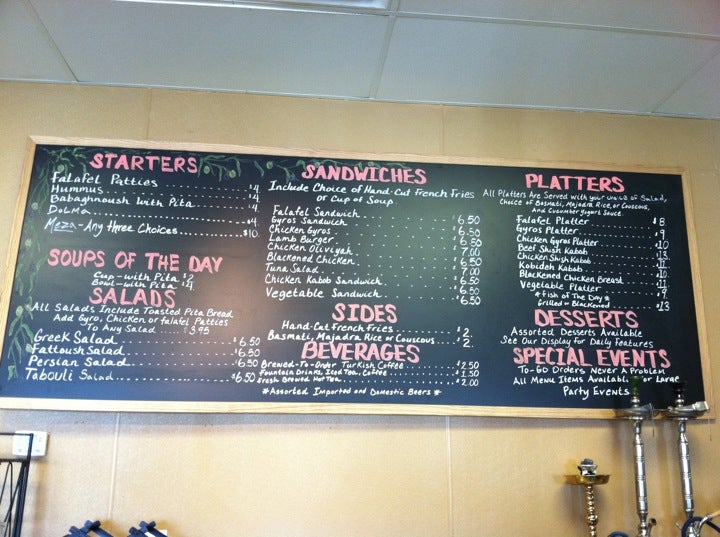 STARTERS
Falafel Patties $4
Hummus $4
Babaghnoush with Pita $4
Dolma $4
Meza-Any Three Choices $10
SOUPS OF THE DAY
Cup-with Pita $2
Bowl-with Pita $4
SALADS
All Salads Include Toasted Pita Bread
Add Gyro, Chicken or falafel Patties
To Any Salad $3.95
Greek Salad $6.50
Fattoush Salad $6.50
Persian Salad $6.50
Tabouli Salad $6.50
SANDWICHES
Include Choice of Hand-Cut French Fries
or Cup of Soup
Falafel Sandwich $6.50
Gyros Sandwich
Chicken Gyros
Lamb Burger
Chicken Oliviyah
Blackened Chicken
Tuna Salad
Chicken Kabob Sandwich
Vegetable Sandwich $6.50
SIDES
Hand-Cut French Fries $2.
Basmati, Majadra Rice or Couscous $2.
BEVERAGES
Brewed-To-Order Turkish Coffee $2.50
Fountain Drinks, Iced Tea, Coffee $1.50
Fresh Brewed Hot Tea $2.00
*Assorted Imported and Domestic Beers*
PLATTERS
All Platters Are Served with your choice of Salad,
Choice of Basmati, Majadra Rice, or Couscous,
And Cucumber Yogurt Sauce
Falafel Platter $8
Gyros Platter $9
Chicken Gyros Platter
Beef Shish Kabob
Chicken Shish Kabob
Kobideh Kabob
Blackened Chicken Breast
Vegetable Platter $9
*Fish of The Day*
Grilled or Blackened $13
DESSERTS
Assorted Desserts Available
See Our Display for Daily Features
SPECIAL EVENTS
To-Go Orders Never A Problem
All Menu Items Available For Large
Party Events